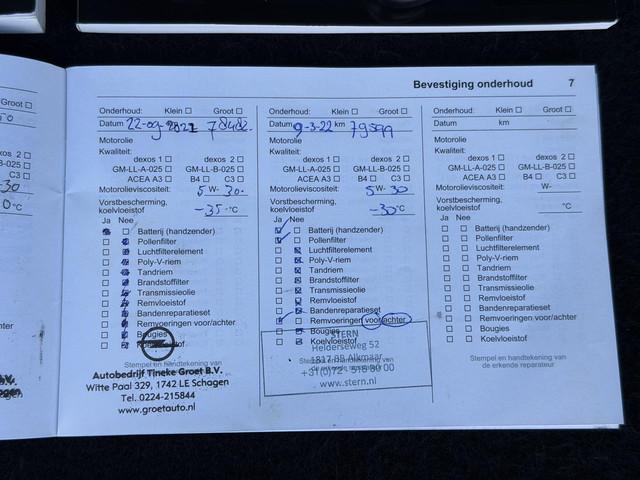 Bevestiging onderhoud 7
Groot ☐
dexos 2 ☐
B-025 ☐
C3 ☐
-30
0°C
Onderhoud: Klein ☐ Groot ☐
Datum 22-09-2021
Motorolie
Kwaliteit:
dexos 1 ☐ dexos 2 ☐
GM-LL-A-025 ☐ GM-LL-B-025 ☐
ACEA A3 ☐ B4 ☐ C3 ☐
Motorolieviscositeit: 5 W- 30
Vorstbescherming,
koelvloeistof -35 °C
Ja Nee
Batterij (handzender)
Pollenfilter
Luchtfilterelement
Poly-V-riem
Tandriem
Brandstoffilter
Transmissieolie
Remvloeistof
Bandenreparatieset
Remvoeringen voor/achter
Bougies
Koelvloeistof
Stempel en handtekening van
Autobedrijf Tineke Groet B.V.
Witte Paal 329, 1742 LE Schagen
Tel. 0224-215844
www.groetauto.nl
Onderhoud: Klein ☐ Groot ☐
Datum 9-3-22 km 79599
Motorolie
Kwaliteit:
dexos 1 ☐ dexos 2 ☐
GM-LL-A-025 ☐ GM-LL-B-025 ☐
ACEA A3 ☐ B4 ☐ C3 ☐
Motorolieviscositeit: 5 W- 30
Vorstbescherming,
koelvloeistof -30 °C
Ja Nee
Batterij (handzender)
Pollenfilter
Luchtfilterelement
Poly-V-riem
Tandriem
Brandstoffilter
Transmissieolie
Remvloeistof
Bandenreparatieset
Remvoeringen voor/achter
Bougies
Koelvloeistof
STERN
Helderseweg 52
1817 BB Alkmaar
www.stern.nl
Onderhoud: Klein ☐ Groot ☐
Datum km
Motorolie
Kwaliteit:
dexos 1 ☐ dexos 2 ☐
GM-LL-A-025 ☐ GM-LL-B-025 ☐
ACEA A3 ☐ B4 ☐ C3 ☐
Motorolieviscositeit: W-
Vorstbescherming,
koelvloeistof °C
Ja Nee
☐ ☐ Batterij (handzender)
☐ ☐ Pollenfilter
☐ ☐ Luchtfilterelement
☐ ☐ Poly-V-riem
☐ ☐ Tandriem
☐ ☐ Brandstoffilter
☐ ☐ Transmissieolie
☐ ☐ Remvloeistof
☐ ☐ Bandenreparatieset
☐ ☐ Remvoeringen voor/achter
☐ ☐ Bougies
☐ ☐ Koelvloeistof
Stempel en handtekening van
de erkende reparateur